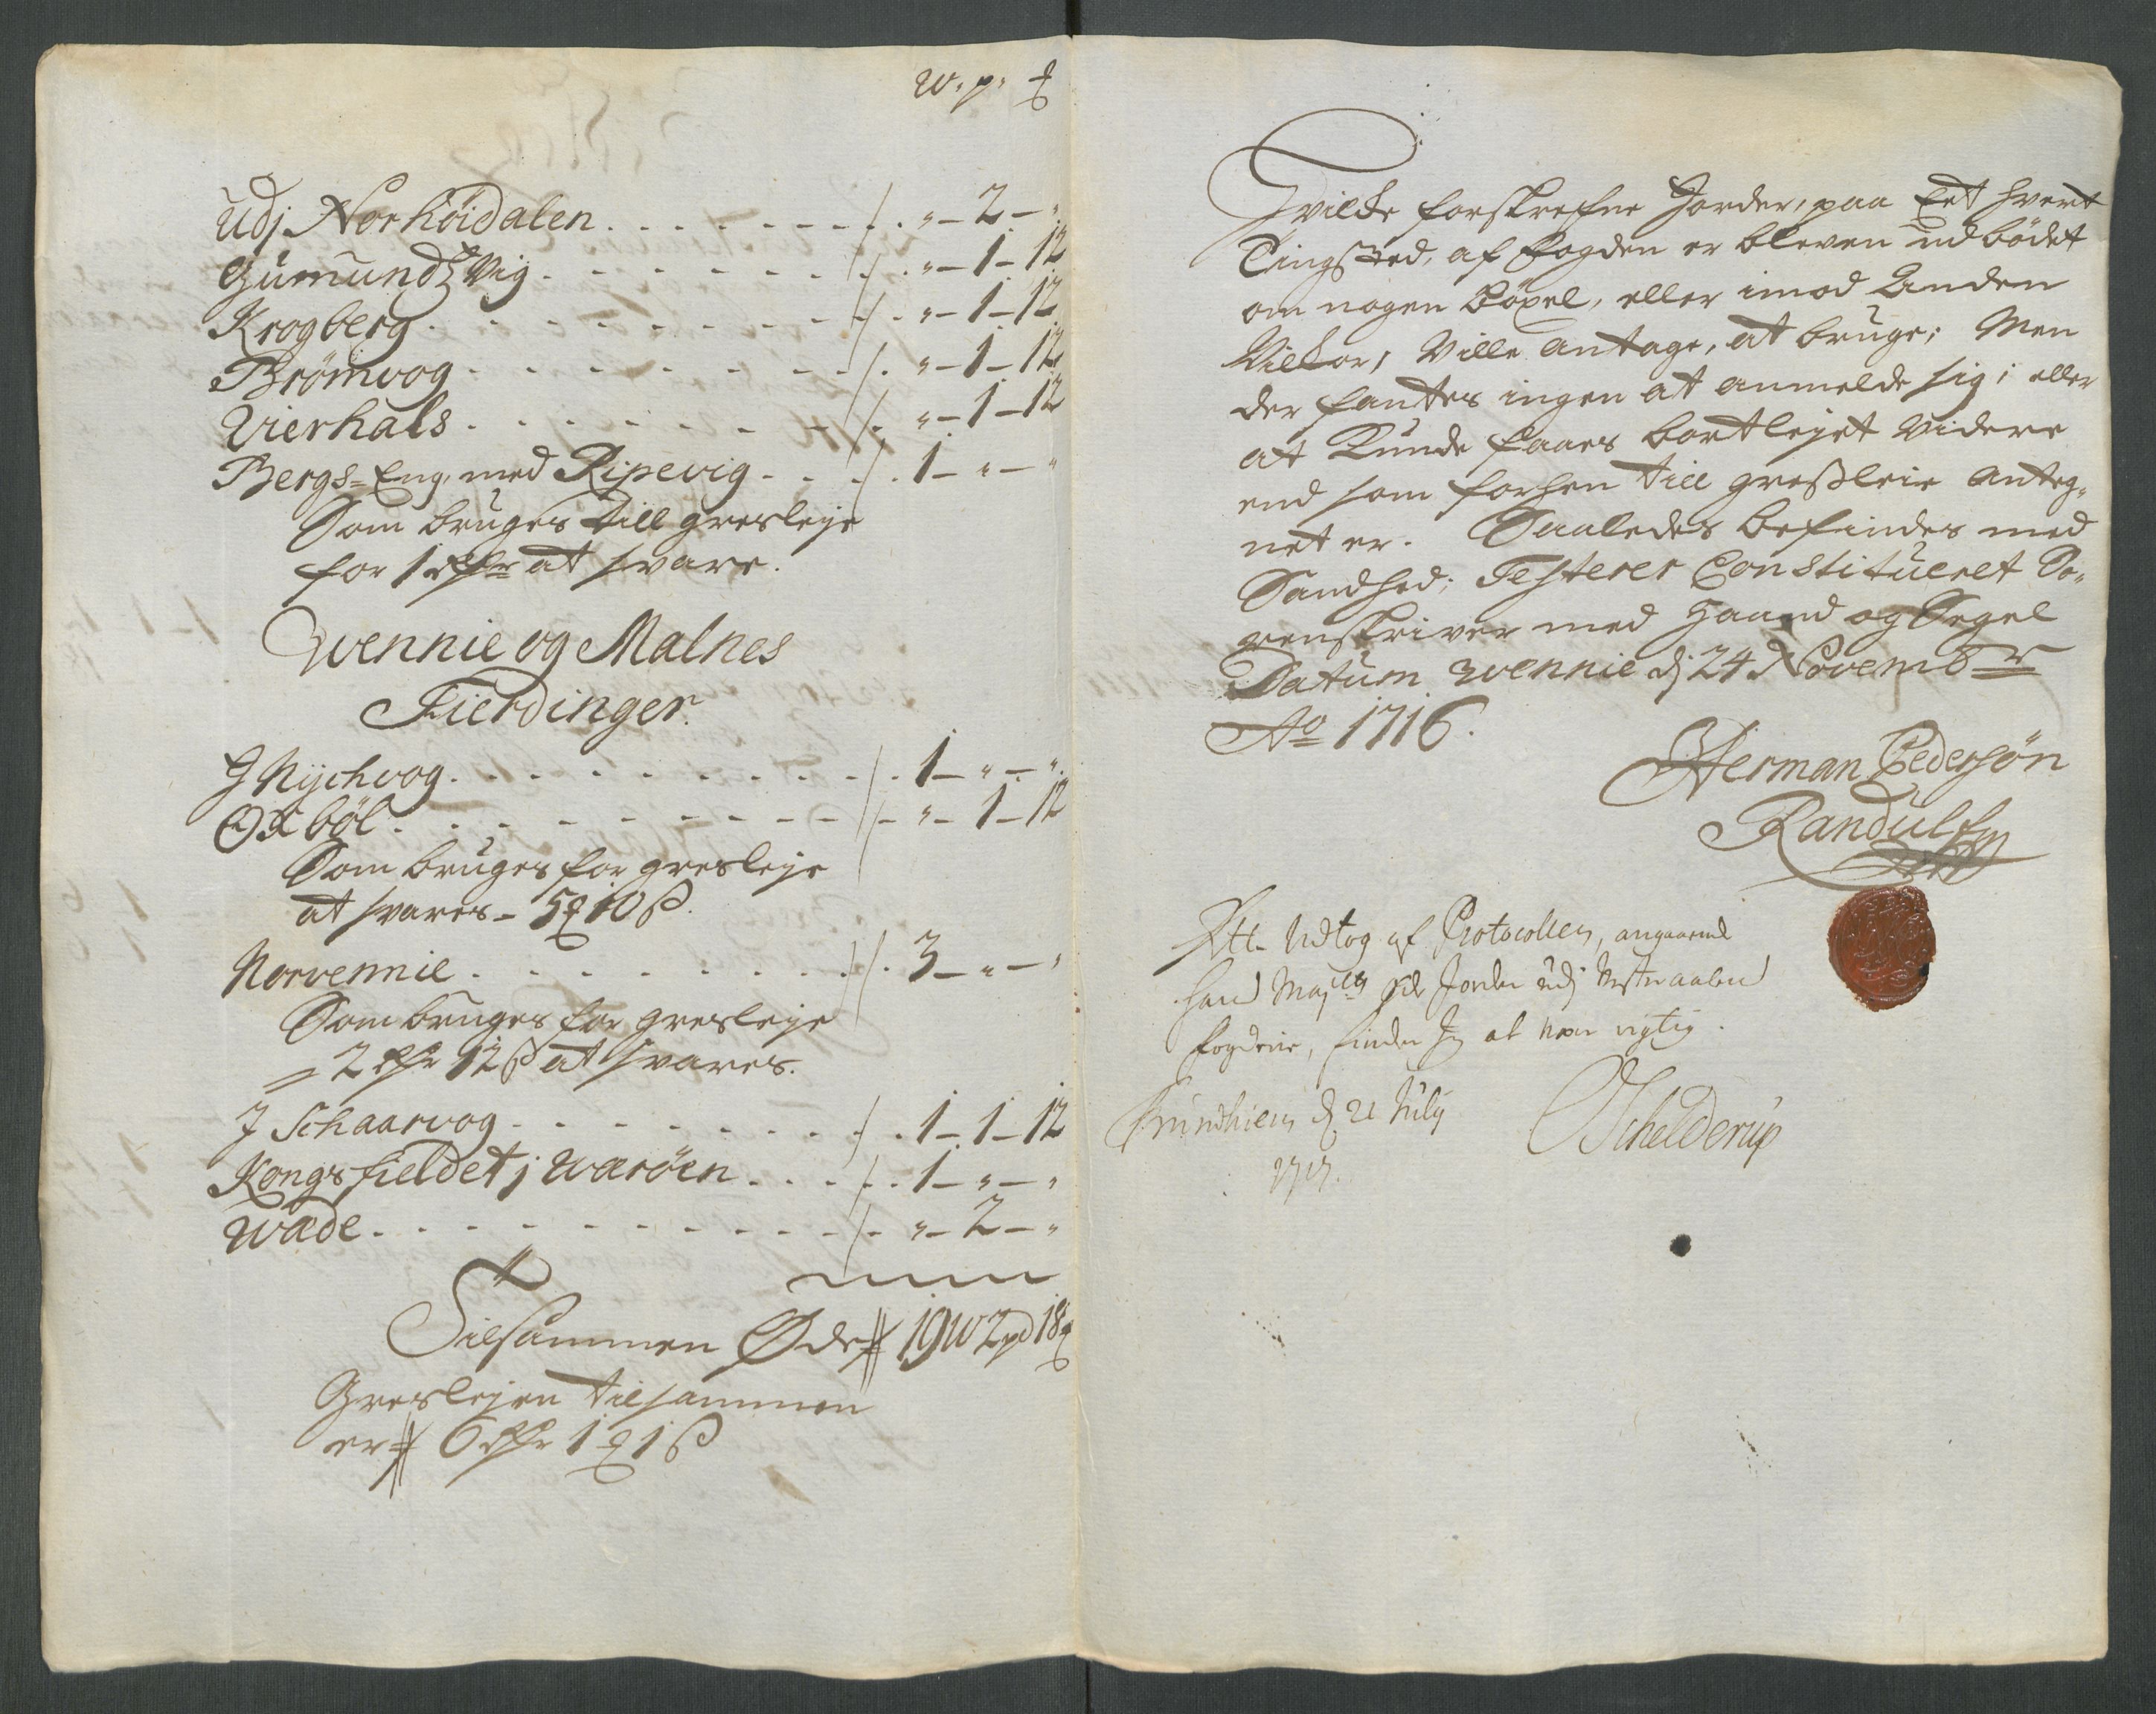 W. p. ℔
Udj Norhöidalen . . . . . . . . „ – 2 – „
Gumundz Vig . . . . . . . „ – 1 – 12
Krogberg . . . . . . . . „ – 1 – 12
Brömvog . . . . . . . „ – 1 – 12
Vierhals . . . . . . . „ – 1 – 12
Bergs=Eng, med Ripevig . . . 1 – „ – „
Som bruges till gresleje
for 1 rdr at svare.
Wennie og Malnes
Fierdinger.
J Nychvog . . . . . . . . 1 – „ – „
Oxböl . . . . . . . . „ – 1 – 12
Som bruges for gresleje
at svares – 5 ℔ 10 ß.
Norvennie . . . . . . . . 3 – „ – „
Som bruges for gresleje
= 2 rdr 12 ß at svares.
J Schaarvog . . . . . . . . 1 – 1 – 12
Kongsfieldet j Waröen . . . . 1 – „ – „
Wæde . . . . . . . . . „ – 2 – „
Tilsammen Øde 19 W 2 pd 18 ℔
Greslejen tilsammen
er 6 rdr 1 ℔ 1 ß
Hvilke forskrefne Jorder, paa Eet hvert
Tingsted, af Fogden er bleven udbödet
om nogen Böxel, eller imod Anden
Vilkor, Ville antage, at bruge; Men
der fantes ingen at anmelde sig; eller
at Kunde faaes bortlejet Videre
end som forhen till gresleie anteg„
net er. Saaledes befindes med
Sandhed; Testerer Constitueret So„
renskriver med Haand og Segel
Datum Wennie dj 24 Novembr
Ao 1716.
Herman Pedersøn
Randulf
Udtog af Protocollen, angaaende
hans Mayts øde Jorder udj Vesteraalens
fogderie, finder Jeg at være rigtig.
Trundhiem d. 21 July
1717.
Schelderup